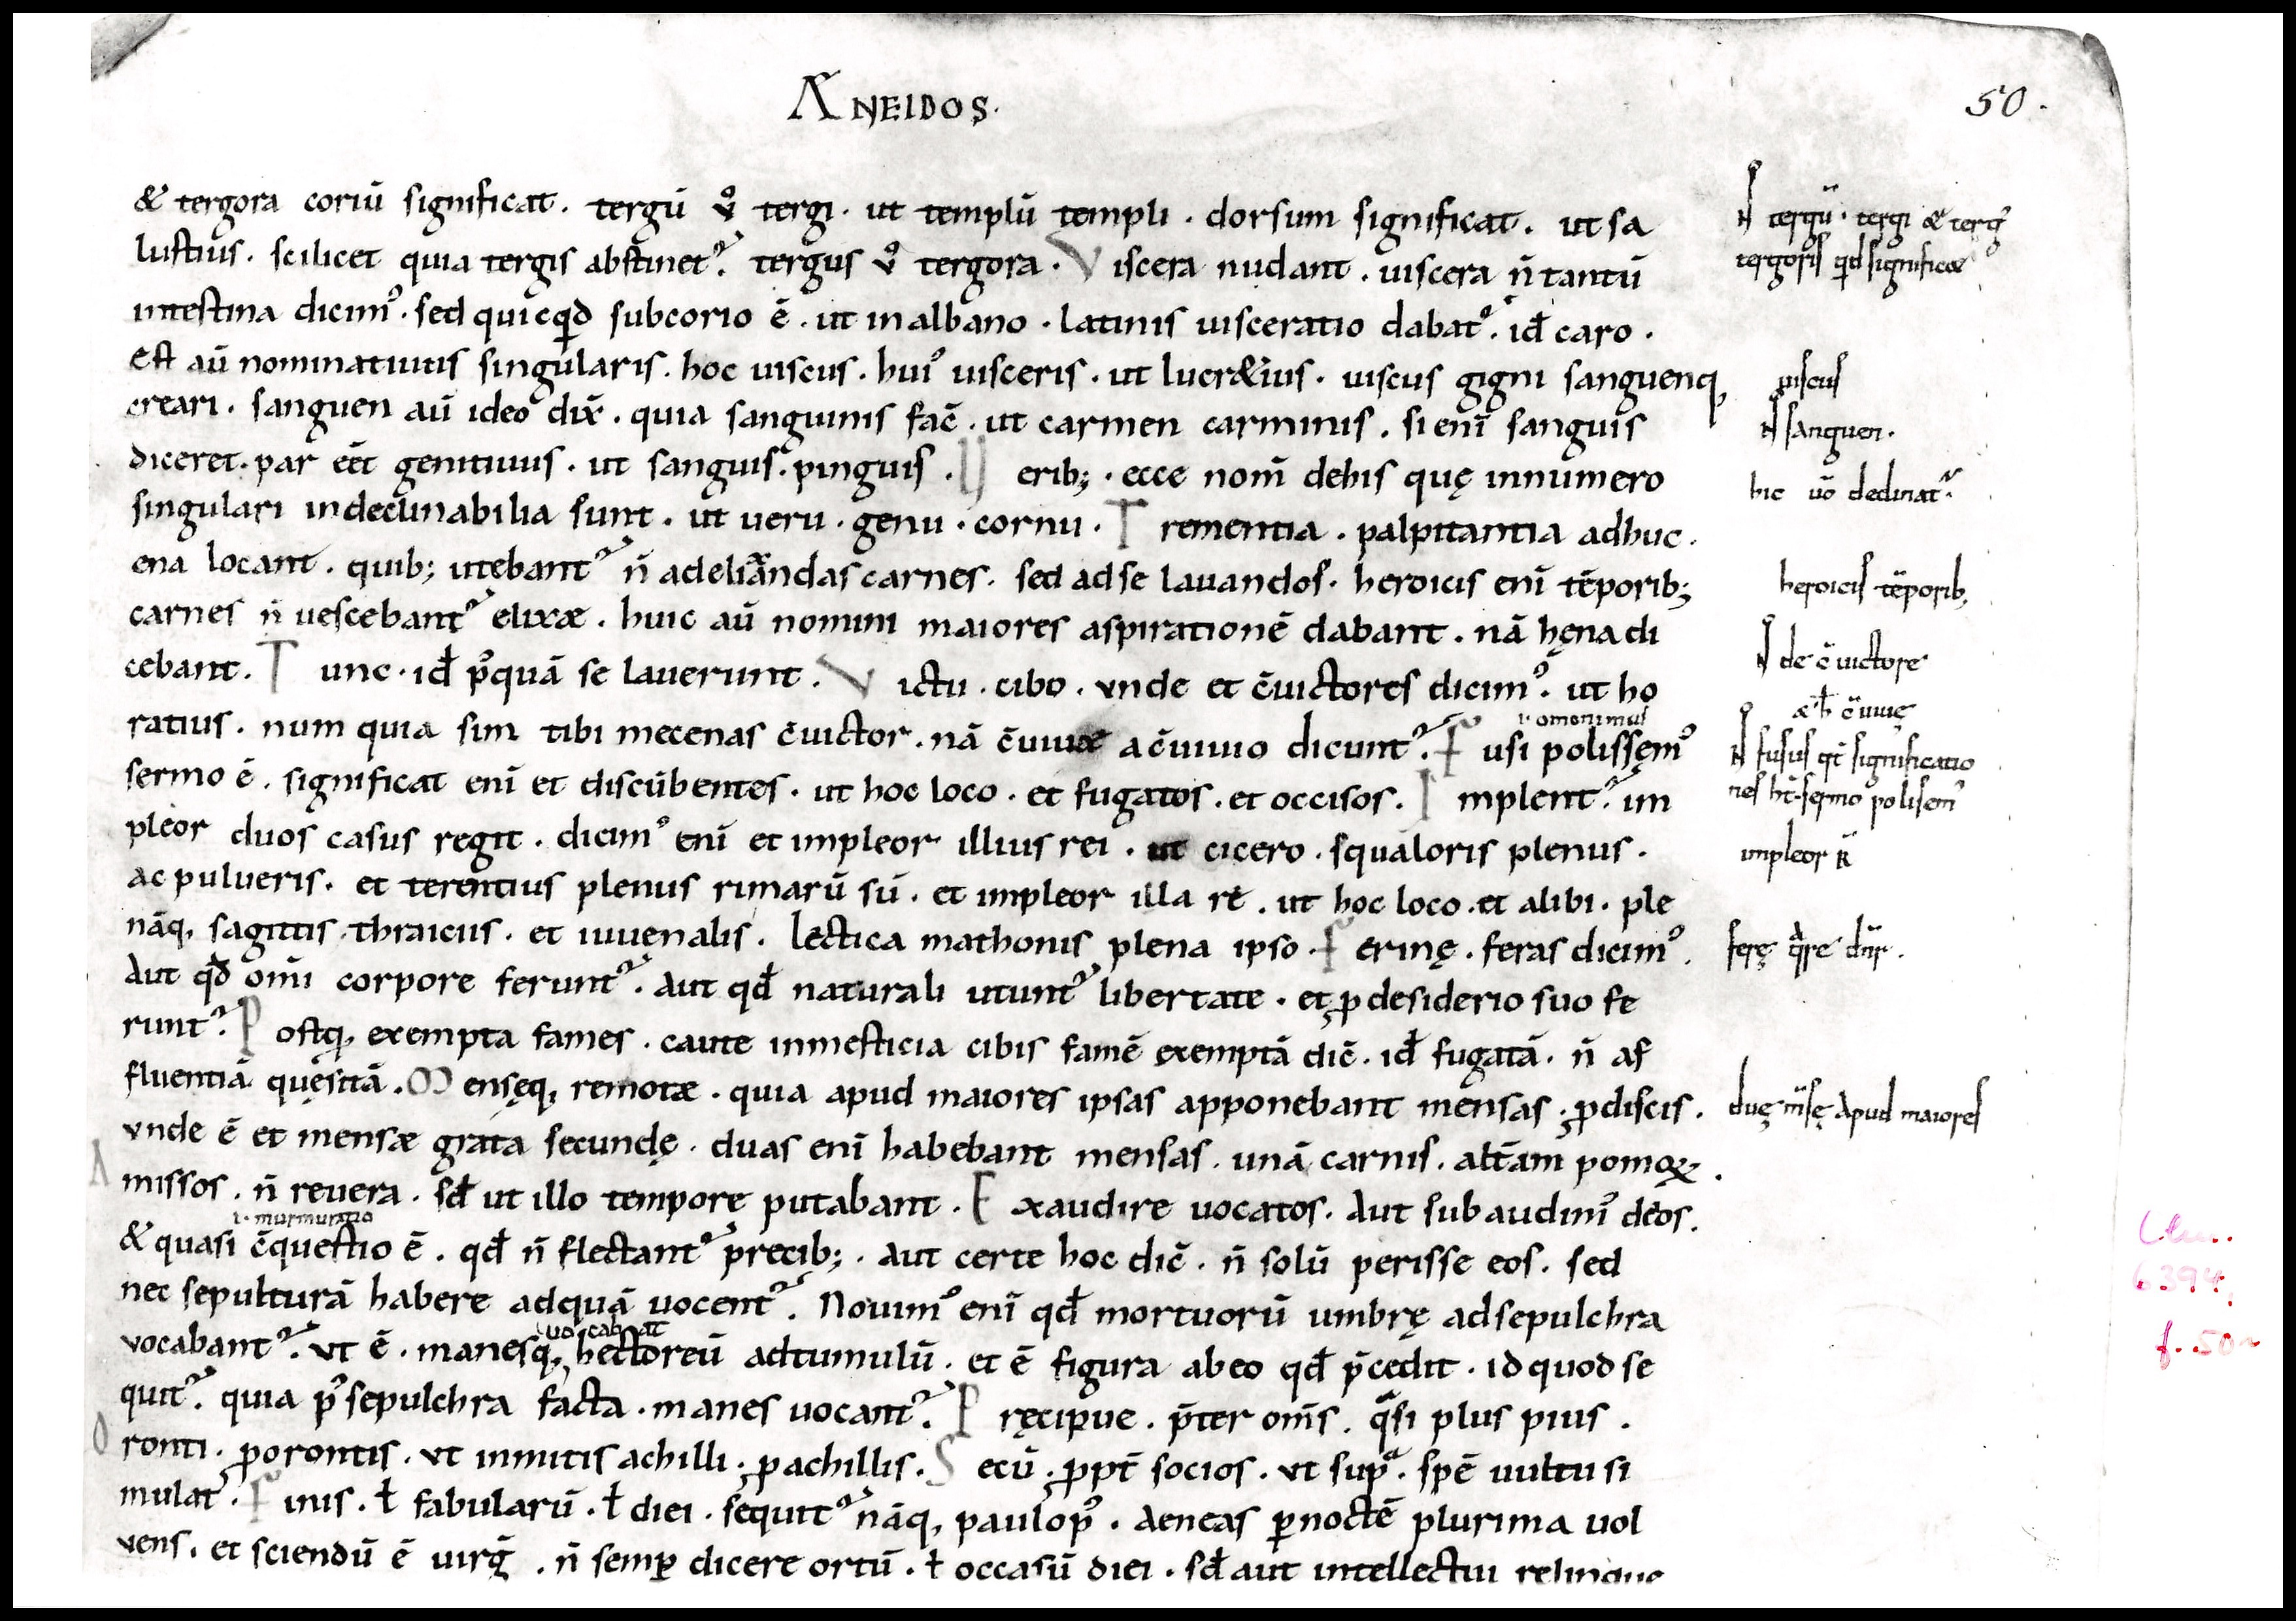 ÆNEIDOS.
50.
& tergora coriū significat. tergū v̊ tergi. ut templū templi. dorsum significat. ut sa
lustius. scilicet quia tergis abstinet᷒. tergus v̊ tergora. Viscera nudant. uiscera n̄ tantū
intestina dicim᷒. sed quicq̇d subcorio ē. ut inalbano. latinis uisceratio dabat᷒. id̄ caro.
Est aū nominatiuus singularis. hoc uiscus. hui᷒ uisceris. ut lucr&ius. uiscus gigni sanguenq,
creari. sanguen aū ideo dix̄. quia sanguinis fac̄. ut carmen carminis. si enī sanguis
diceret. par eēt genitiuus. ut sanguis. pinguis. Uerib;. ecce nom̄ dehis quę innumero
singulari indeclinabilia sunt. ut ueru. genu. cornu. Trementia. palpitantia adhuc.
ena locant. quib; utebant᷒ n̄ adelixandas carnes. sed adse lauandos. heroicis enī tēporib;
carnes n̄ uescebant᷒ elixæ. huic aū nomini maiores aspirationē dabant. nā hęna di
cebant. Tunc. id̄ p᷒quā se lauerunt. Victu. cibo. vnde et c̄uictores dicim᷒. ut ho
ratius. num quia sim tibi mecenas c̄uictor. nā c̄uiuæ ac̄uiuio dicunt᷒. Fusi polissęm᷒
.i. omonimus
sermo ē. significat enī et discūbentes. ut hoc loco. et fugatos. et occisos. Implent᷒. im
pleor duos casus regit. dicim᷒ enī et impleor illius rei. ut cicero. squaloris plenus.
ac pulueris. et terentius plenus rimarū sū. et impleor illa rē. ut hoc loco. et alibi. ple
nāq, sagittis. thraicius. et iuuenalis. lectica mathonis plena ipso. Ferinę. feras dicim᷒.
Aut qd̄ om̄i corpore ferunt᷒. Aut qd̄ naturali utunt᷒ libertate. et ꝓdesiderio suo fe
runt᷒. Postq, exempta fames. caute inmesticia cibis famē exemptā dic̄. id̄ fugatā. n̄ af
fluentiā quęsitā. Mensęq, remotæ. quia apud maiores ipsas apponebant mensas. ꝓdiscis.
vnde ē et mensæ grata secundę. duas enī habebant mensas. unā carnis. alt̄am pomoꝝ.
Amissos. n̄ reuera. sd̄ ut illo tempore putabant. Exaudire uocatos. Aut subaudim᷒ deos.
.i. murmuratio
& quasi c̄questio ē. qd̄ n̄ flectant᷒ precib;. Aut certe hoc dic̄. n̄ solū perisse eos. sed
nec sepulturā habere adquā uocent᷒. Nouim᷒ enī qd̄ mortuorū umbrę adsepulchra
vocabant᷒. vt ē. manesq, uocabat hectoreū adtumulū. et ē figura abeo qd̄ p̄cedit. id quod se
quit᷒. quia p᷒ sepulchra facta. manes uocant᷒. Pręcipue. p̄ter om̄s. qͣsi plus pius.
Oronti. ꝓorontis. vt inmitis achilli. ꝓachillis. Secū. ꝓpt̄ socios. vt supͣ. spē uultu si
mulat᷒. Finis. ł fabularū. ł diei. sequit᷒ nāq, paulop᷒. Aeneas ꝑnoctē plurima uol
vens. et sciendū ē uirḡ. n̄ semꝑ dicere ortū. ł occasū diei. sd̄ aut intellectui relinque
tergū. tergi & terg᷒
tergoris qd significat
uiscus
sanguen.
hic uō declinat᷒.
heroicis tēporib,
de c̄uictore
& c̄uiuę
fusus qt̄ significatio
nes ht̄. sermo polisem᷒
impleor R̄
ferę qͣre dn̄r.
duę m̄sę Apud maiores
Clm.
6394,
f. 50r